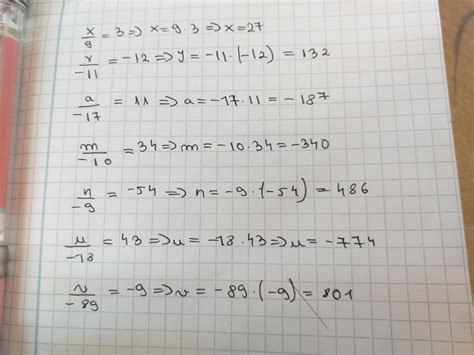 x/9 = 3 => x = 9 · 3 => x = 27
y/-11 = -12 => y = -11 · (-12) = 132
a/-17 = 11 => a = -17 · 11 = -187
m/-10 = 34 => m = -10 · 34 = -340
n/-9 = -54 => n = -9 · (-54) = 486
u/-18 = 43 => u = -18 · 43 => u = -774
v/-89 = -9 => v = -89 · (-9) = 801